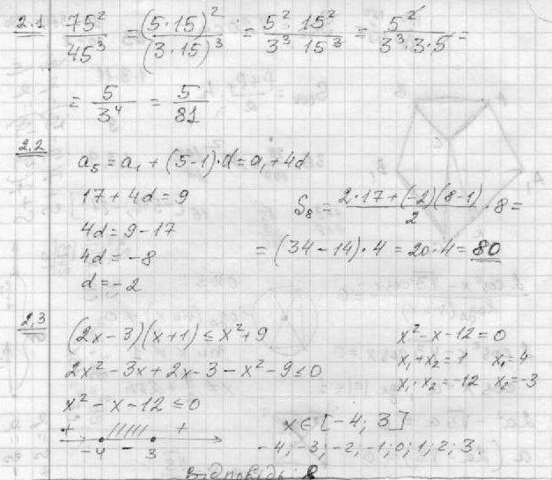 2.1 75²/45³ = (5·15)²/(3·15)³ = 5²·15²/3³·15³ = 5²/3³·3·5 =
= 5/3⁴ = 5/81
2.2 a₅ = a₁ + (5-1)·d = a₁ + 4d
17 + 4d = 9
4d = 9 - 17
4d = -8
d = -2
S₈ = 2·17+(-2)(8-1)/2 · 8 =
= (34 - 14)·4 = 20·4 = 80
2.3 (2x-3)(x+1) ≤ x²+9
2x² - 3x + 2x - 3 - x² - 9 ≤ 0
x² - x - 12 ≤ 0
+ - +
-4 3
x² - x - 12 = 0
x₁ + x₂ = 1 x₁ = 4
x₁·x₂ = -12 x₂ = -3
x ∈ [-4; 3]
-4; -3; -2; -1; 0; 1; 2; 3.
Відповідь: 8